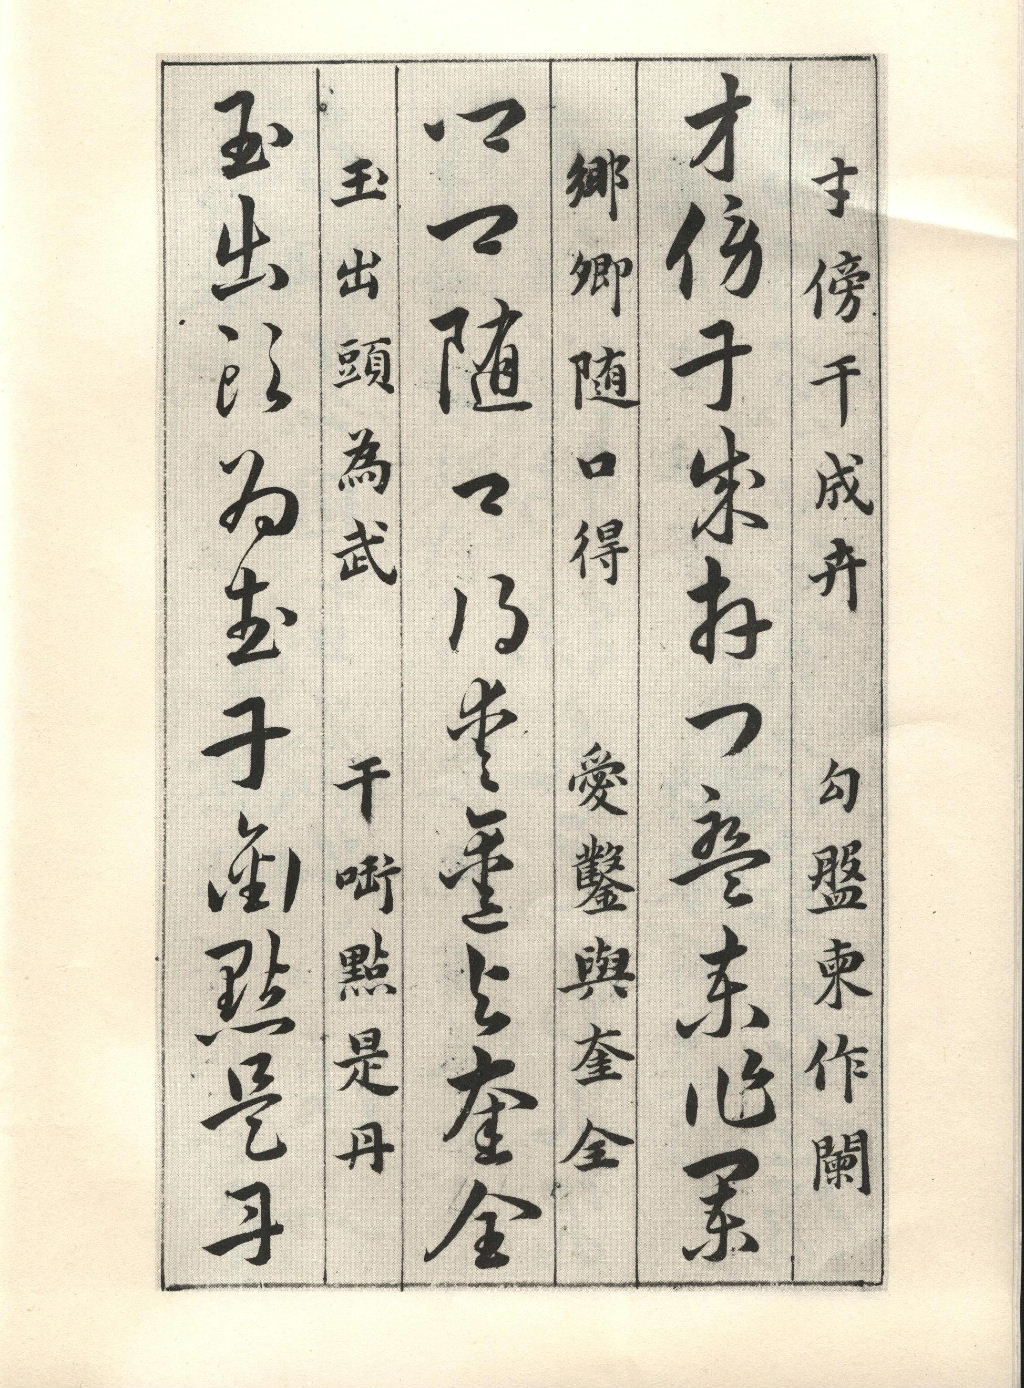 扌傍干成卉 勾盤柬作闌
才傍干成卉勾盤柬作闌
鄉卿随口得 愛鑿與奎全
鄉卿随口得愛鑿與奎全
玉出頭為武 干啣點是丹
玉出頭為武干啣點是丹